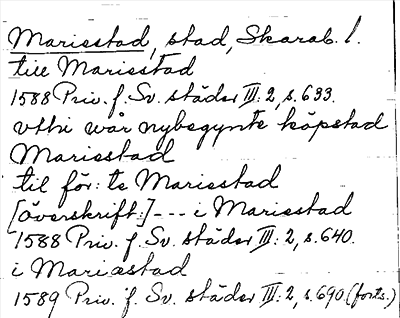 Mariestad, stad, Skarab. l.
till Mariestad
1588 Priv. f. Sv. städer III: 2, s. 633.
vthi wår nybegynte köpstad
Mariestad
til för:te Mariestad
[överskrift:] --- i Mariestad
1588 Priv. f. Sv. städer III: 2, s. 640.
i Mariæstad
1589 Priv. f. Sv. städer III: 2, s. 690 (forts.)